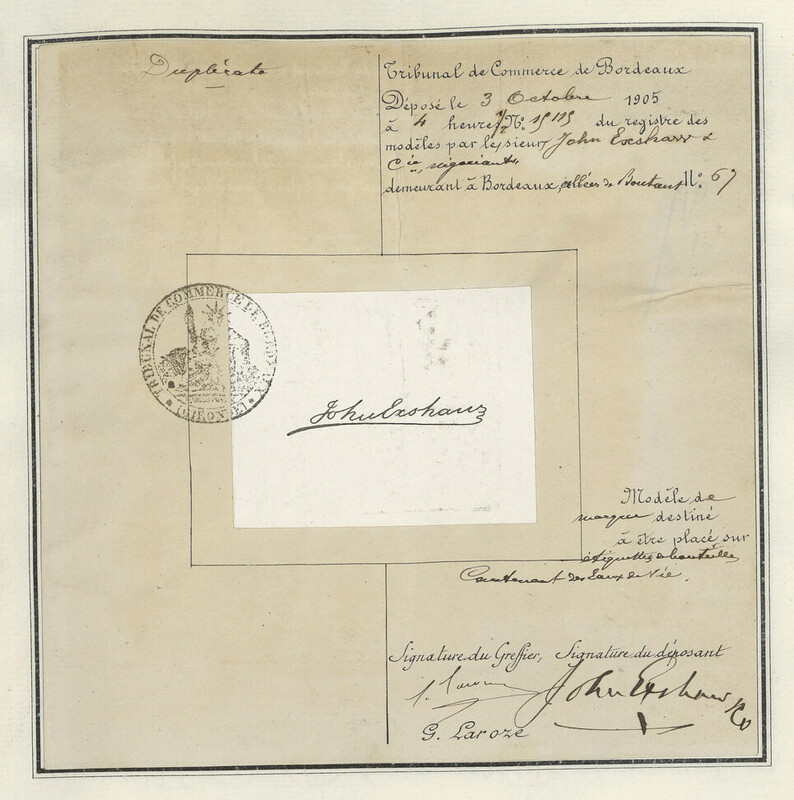 Duplicata
Tribunal de Commerce de Bordeaux
Déposé le 3 Octobre 1905
à 4 heures 1/2 N° du registre des
modèles par les sieurs John Exshaw &
Cie, négociants,
demeurant à Bordeaux, allées de Boutaut N° 67
TRIBUNAL DE COMMERCE DE BORDEAUX
(GIRONDE)
John Exshaw
Modèle de
marque destiné
à être placé sur
étiquettes de bouteilles
Contenant des Eaux de Vie.
Signature du Greffier, Signature du déposant
John Exshaw & Co
G. Laroze